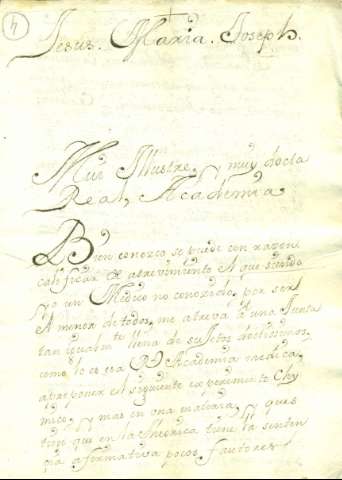 4
Jesus. Maria. Joseph.
Mui Illustre, y muy docta
Real Academia
Bien conozco se puede con razon
calificar de atrevimiento el que siendo
yo un Medico no conozido, por ser
el menor de todos, me atreva a una Junta
tan igualmte llena de sujetos doctissimos,
como lo es esa Rl Academia medica,
a proponer el siguiente experimento Chy
mico, y mas en una materia, y ques
tion que en la theorica tiene la senten
cia afirmativa pocos fautores